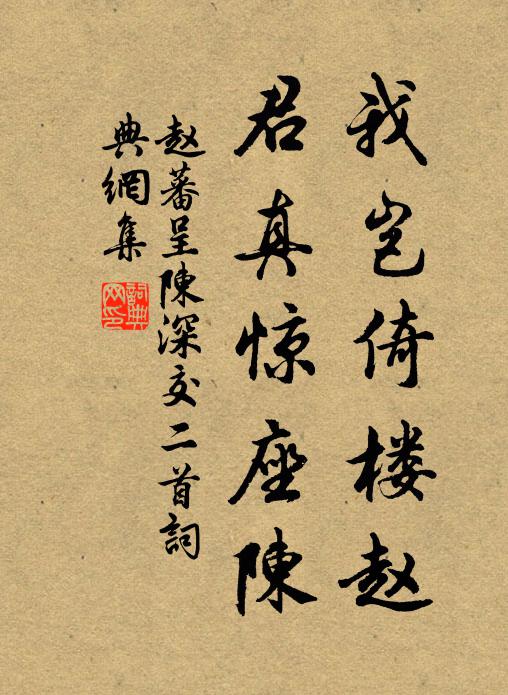 我岂倚楼赵
君真惊座陳
赵蕃呈陳深交二首詞
典網集
詞典网印